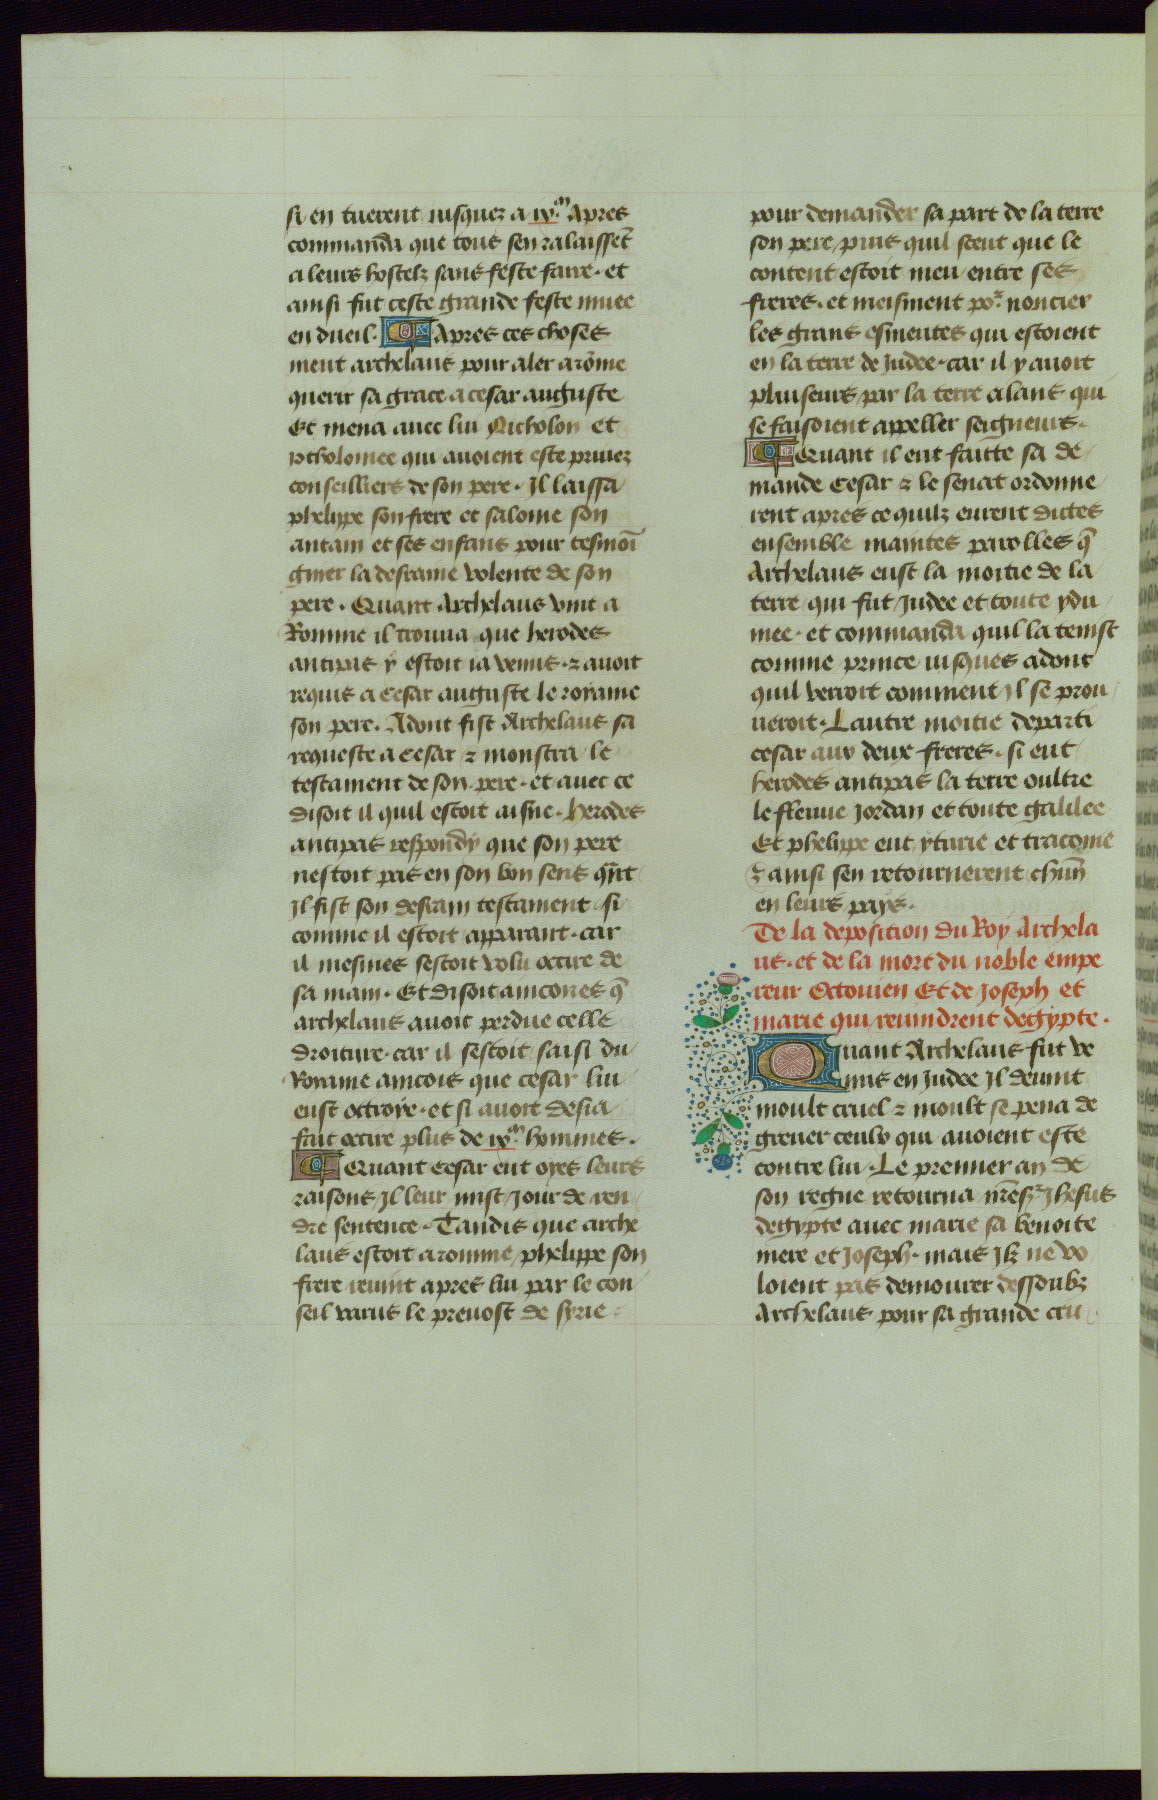 si en tuerent iusquez a ix.m Apres
commanda que tous sen ralaissēt
a leurs hostelz sans feste faire. et
ainsi fut ceste grande feste muee
en dueil. Apres ces choses
meut archelaus pour aler a rōme
querir sa grace a cesar auguste
Et mena auec lui Nicholon et
ptholomee qui auoient este priuez
conseilliers de son pere. Il laissa
phelippe son frere et salome son
antain et ses enfans pour tesmoi
gnier la desraine volente de son
pere. Quant Archelaus vint a
Romme il trouua que herodes
antipas y estoit ia venus. ⁊ auoit
requis a Cesar auguste le royame
son pere. Adont fist Archelaus sa
requeste a Cesar ⁊ monstra le
testament de son pere. et auec ce
disoit il quil estoit aisne. herodes
antipas respondy que son pere
nestoit pas en son bon sens qn̄t
Il fist son desrain testament si
comme il estoit apparant. car
il mesmes sestoit volu occire de
sa main. Et disoit aincores q̄
archelaus auoit perdue celle
droiture. car il sestoit saisi du
Royame aincois que cesar lui
eust octroye. et si auoit desia
fait occire plus de ix.m hommes.
Quant Cesar eut oyes leurs
raisons Il leur mist Jour de ren
dre sentence. Tandis que arche
laus estoit a romme phelippe son
frere reuint apres lui par le con
seil varus le preuost de syrie
pour demander sa part de la terre
son pere puis quil sceut que le
content estoit meu entre ses
freres. et meisment por noncier
les grans esmeutes qui estoient
en la terre de Judee. car il y auoit
pluiseurs par la terre alans qui
se faisoient appeller seigneurs.
Quant il eut faitte sa de
mande Cesar ⁊ le senat ordonne
rent apres ce quilz eurent dictes
ensemble maintes parolles q̄
Archelaus eust la moitie de la
terre qui fut Judee et toute ydu
mee. et commanda quil la tenist
comme prince iusques adont
quil verroit comment Il se prou
ueroit. Lautre moitie departi
cesar aux deux freres. si eut
herodes antipas la terre oultre
le fleuue Jordan et toute galilee
Et phelippe eut yturie et traconie
⁊ ainsi sen retournerent chūn
en leurs pays.
De la deposition du Roy Archela
us. et de la mort du noble empe
reur Octouien Et de Joseph et
marie qui reuindrent degypte.
Quant Archelaus fut ve
nus en Judee Il deuint
moult cruel ⁊ moult se pena de
greuer ceulx qui auoient este
contre lui. Le premier an de
son regne retourna nr̄e sr Jhesus
degypte auec marie sa benoite
mere et Joseph. mais Ilz ne vo
loient pas demourer dessoubz
Archelaus pour sa grande cru